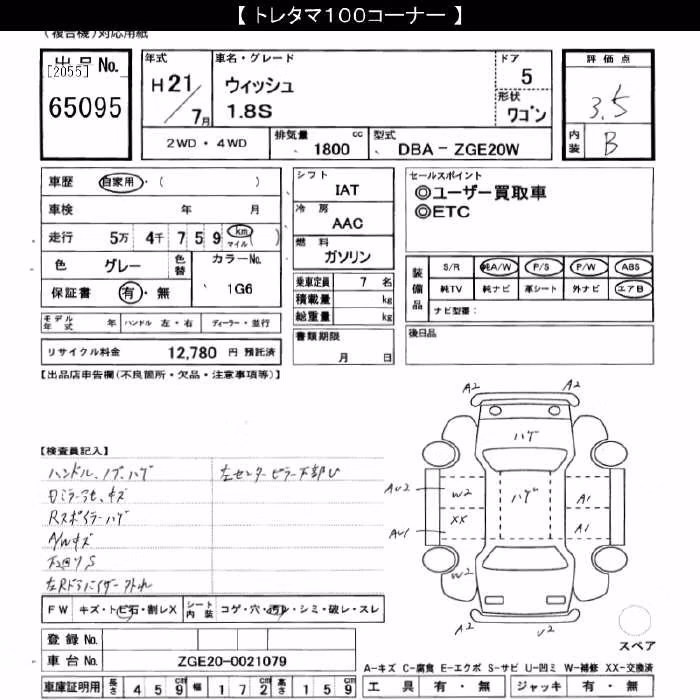 【 トレタマ１００コーナー 】
(複合機)対応用紙
出品No.
[2055]
65095
年式
H21/7月
車名・グレード
ウィッシュ
1.8S
ドア
5
形状
ワゴン
評価点
3.5
内装
B
2WD・4WD
排気量 1800 cc
型式 DBA－ZGE20W
車歴 自家用・( )
車検 年 月
走行 5万 4千 7 5 9 km マイル ( )
色 グレー 色替 カラーNo. 1G6
保証書 有・無
モデル年式 年 ハンドル 左・右 ディーラー・並行
リサイクル料金 12,780 円 預託済
シフト
IAT
冷房
AAC
燃料
ガソリン
乗車定員 7 名
積載量 kg
総重量 kg
書類期限
月 日
セールスポイント
◎ユーザー買取車
◎ETC
装備品
S/R 純A/W P/S P/W ABS
純TV 純ナビ 革シート 外ナビ エアB
ナビ型番：
後日品
【出品店申告欄(不良箇所・欠品・注意事項等)】
【検査員記入】
ハンドル、ノブ、ハゲ
左センターピラー下部U
Rスポイラーハゲ
A/Wキズ
下回りS
左Rドアバイザー外れ
A2 A2
ハゲ
ハゲ
AU2 W2 A1
AU1 XX A1
W2
A2 U2
スペア
FW キズ・トビ石・割レX シート内装 コゲ・穴・汚レ・シミ・破レ・スレ
登録No.
車台No. ZGE20-0021079
車庫証明用 長さ 4 5 9 cm 幅 1 7 2 cm 高さ 1 5 9 cm
A-キズ C-腐食 E-エクボ S-サビ U-凹ミ W-補修 XX-交換済
工具 有・無 ジャッキ 有・無